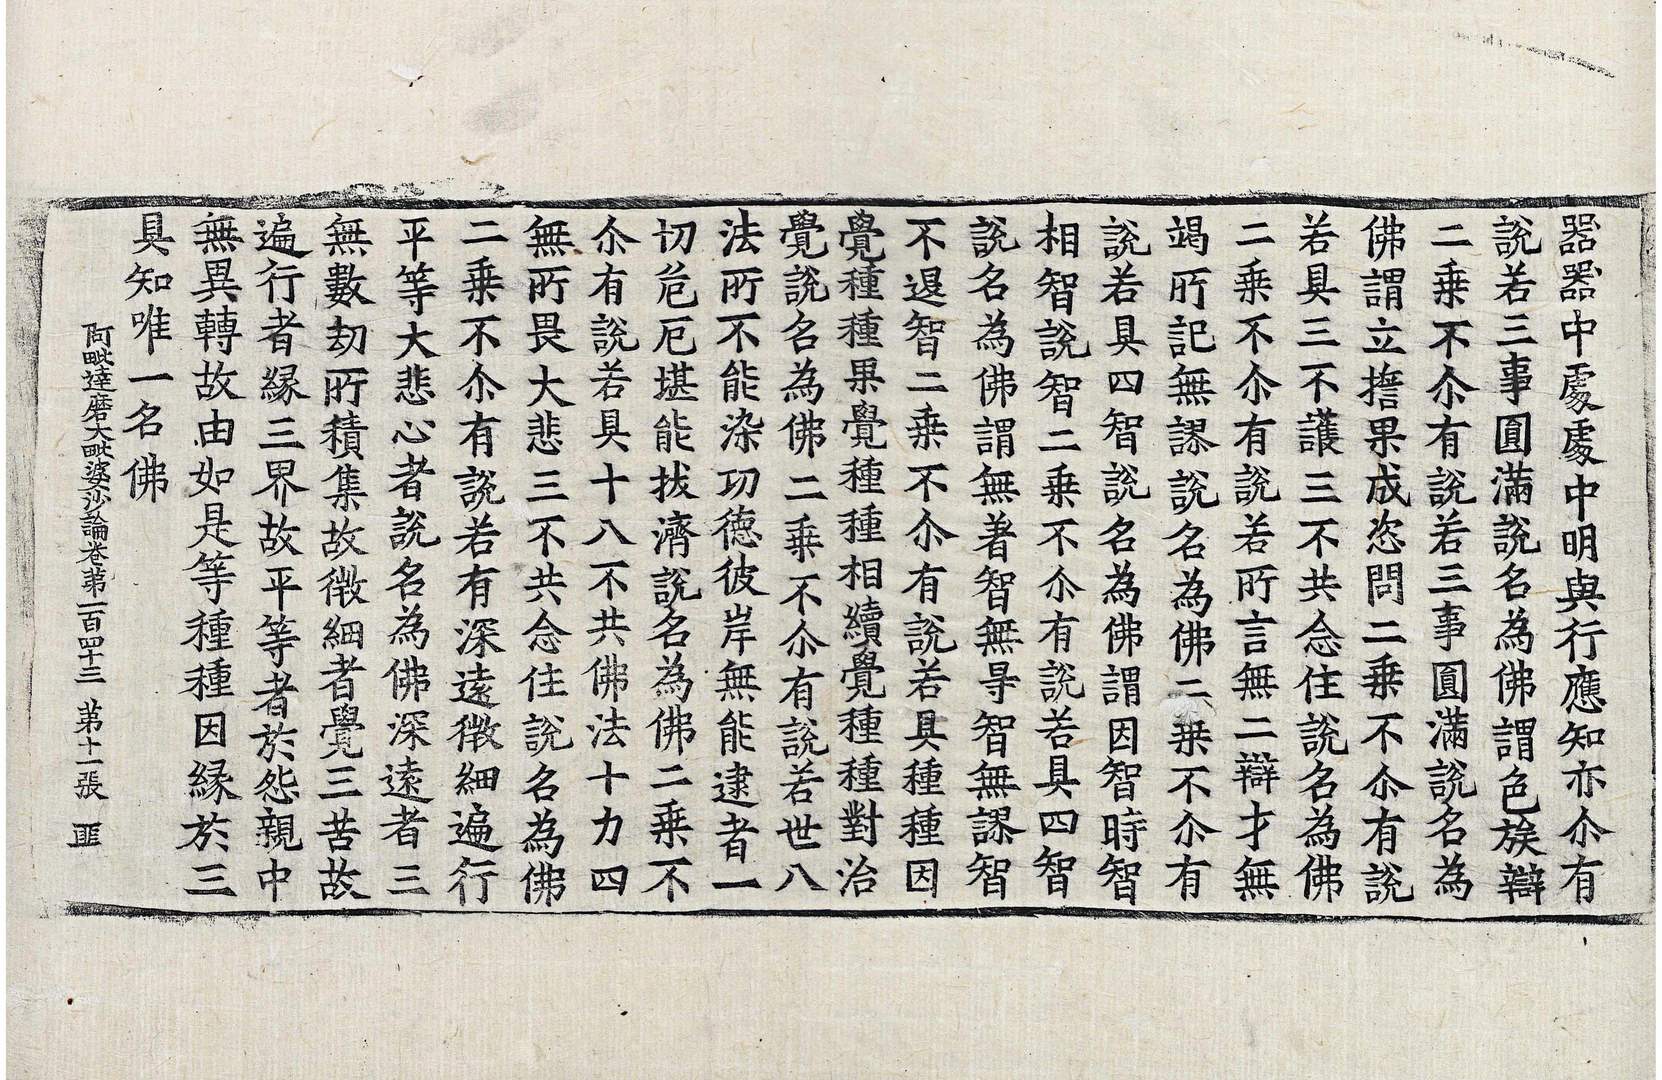 器器中處處中明與行應知亦尒有
說若三事圓滿說名為佛謂色族辯
二乗不尒有說若三事圓滿說名為
佛謂立擔果成恣問二乗不尒有說
若具三不護三不共念住說名為佛
二乗不尒有說若所言無二辯才無
竭所記無謬說名為佛二乗不尒有
說若具四智說名為佛謂因智時智
相智說智二乗不尒有說若具四智
說名為佛謂無著智無㝵智無謬智
不退智二乗不尒有說若具種種因
覺種種果覺種種相續覺種種對治
覺說名為佛二乗不尒有說若世八
法所不能染功德彼岸無能逮者一
切危厄堪能拔濟說名為佛二乗不
尒有說若具十八不共佛法十力四
無所畏大悲三不共念住說名為佛
二乗不尒有說若有深遠微細遍行
平等大悲心者說名為佛深遠者三
無數劫所積集故微細者覺三苦故
遍行者緣三界故平等者於怨親中
無異轉故由如是等種種因緣於三
具知唯一名佛
阿毗達磨大毗婆沙論卷第一百四十三 第十一張 匪